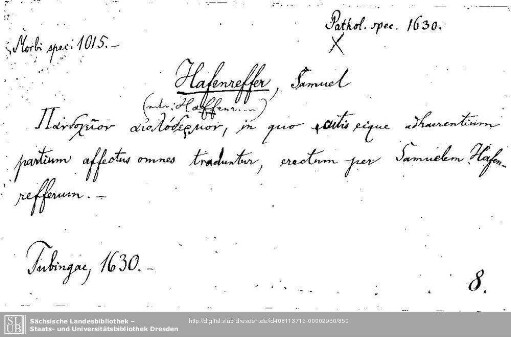 Pathol. spec. 1630.
Morbi spec: 1015. –
X
Hafenreffer, Samuel
Πανδοχεῖον αἰολόδερμον, in quo cutis eique adhaerentium
partium affectus omnes traduntur, erectum per Samuelem Hafen-
refferum. –
Tubingae, 1630. –
8.
Sächsische Landesbibliothek –
Staats- und Universitätsbibliothek Dresden